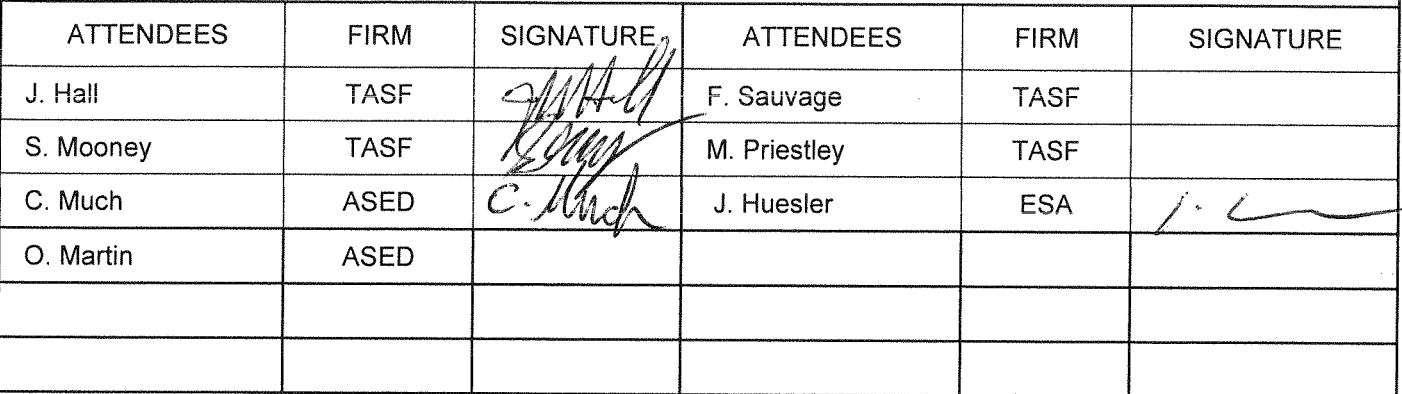 ATTENDEES FIRM SIGNATURE ATTENDEES FIRM SIGNATURE
J. Hall TASF F. Sauvage TASF
S. Mooney TASF M. Priestley TASF
C. Much ASED C. Much J. Huesler ESA
O. Martin ASED